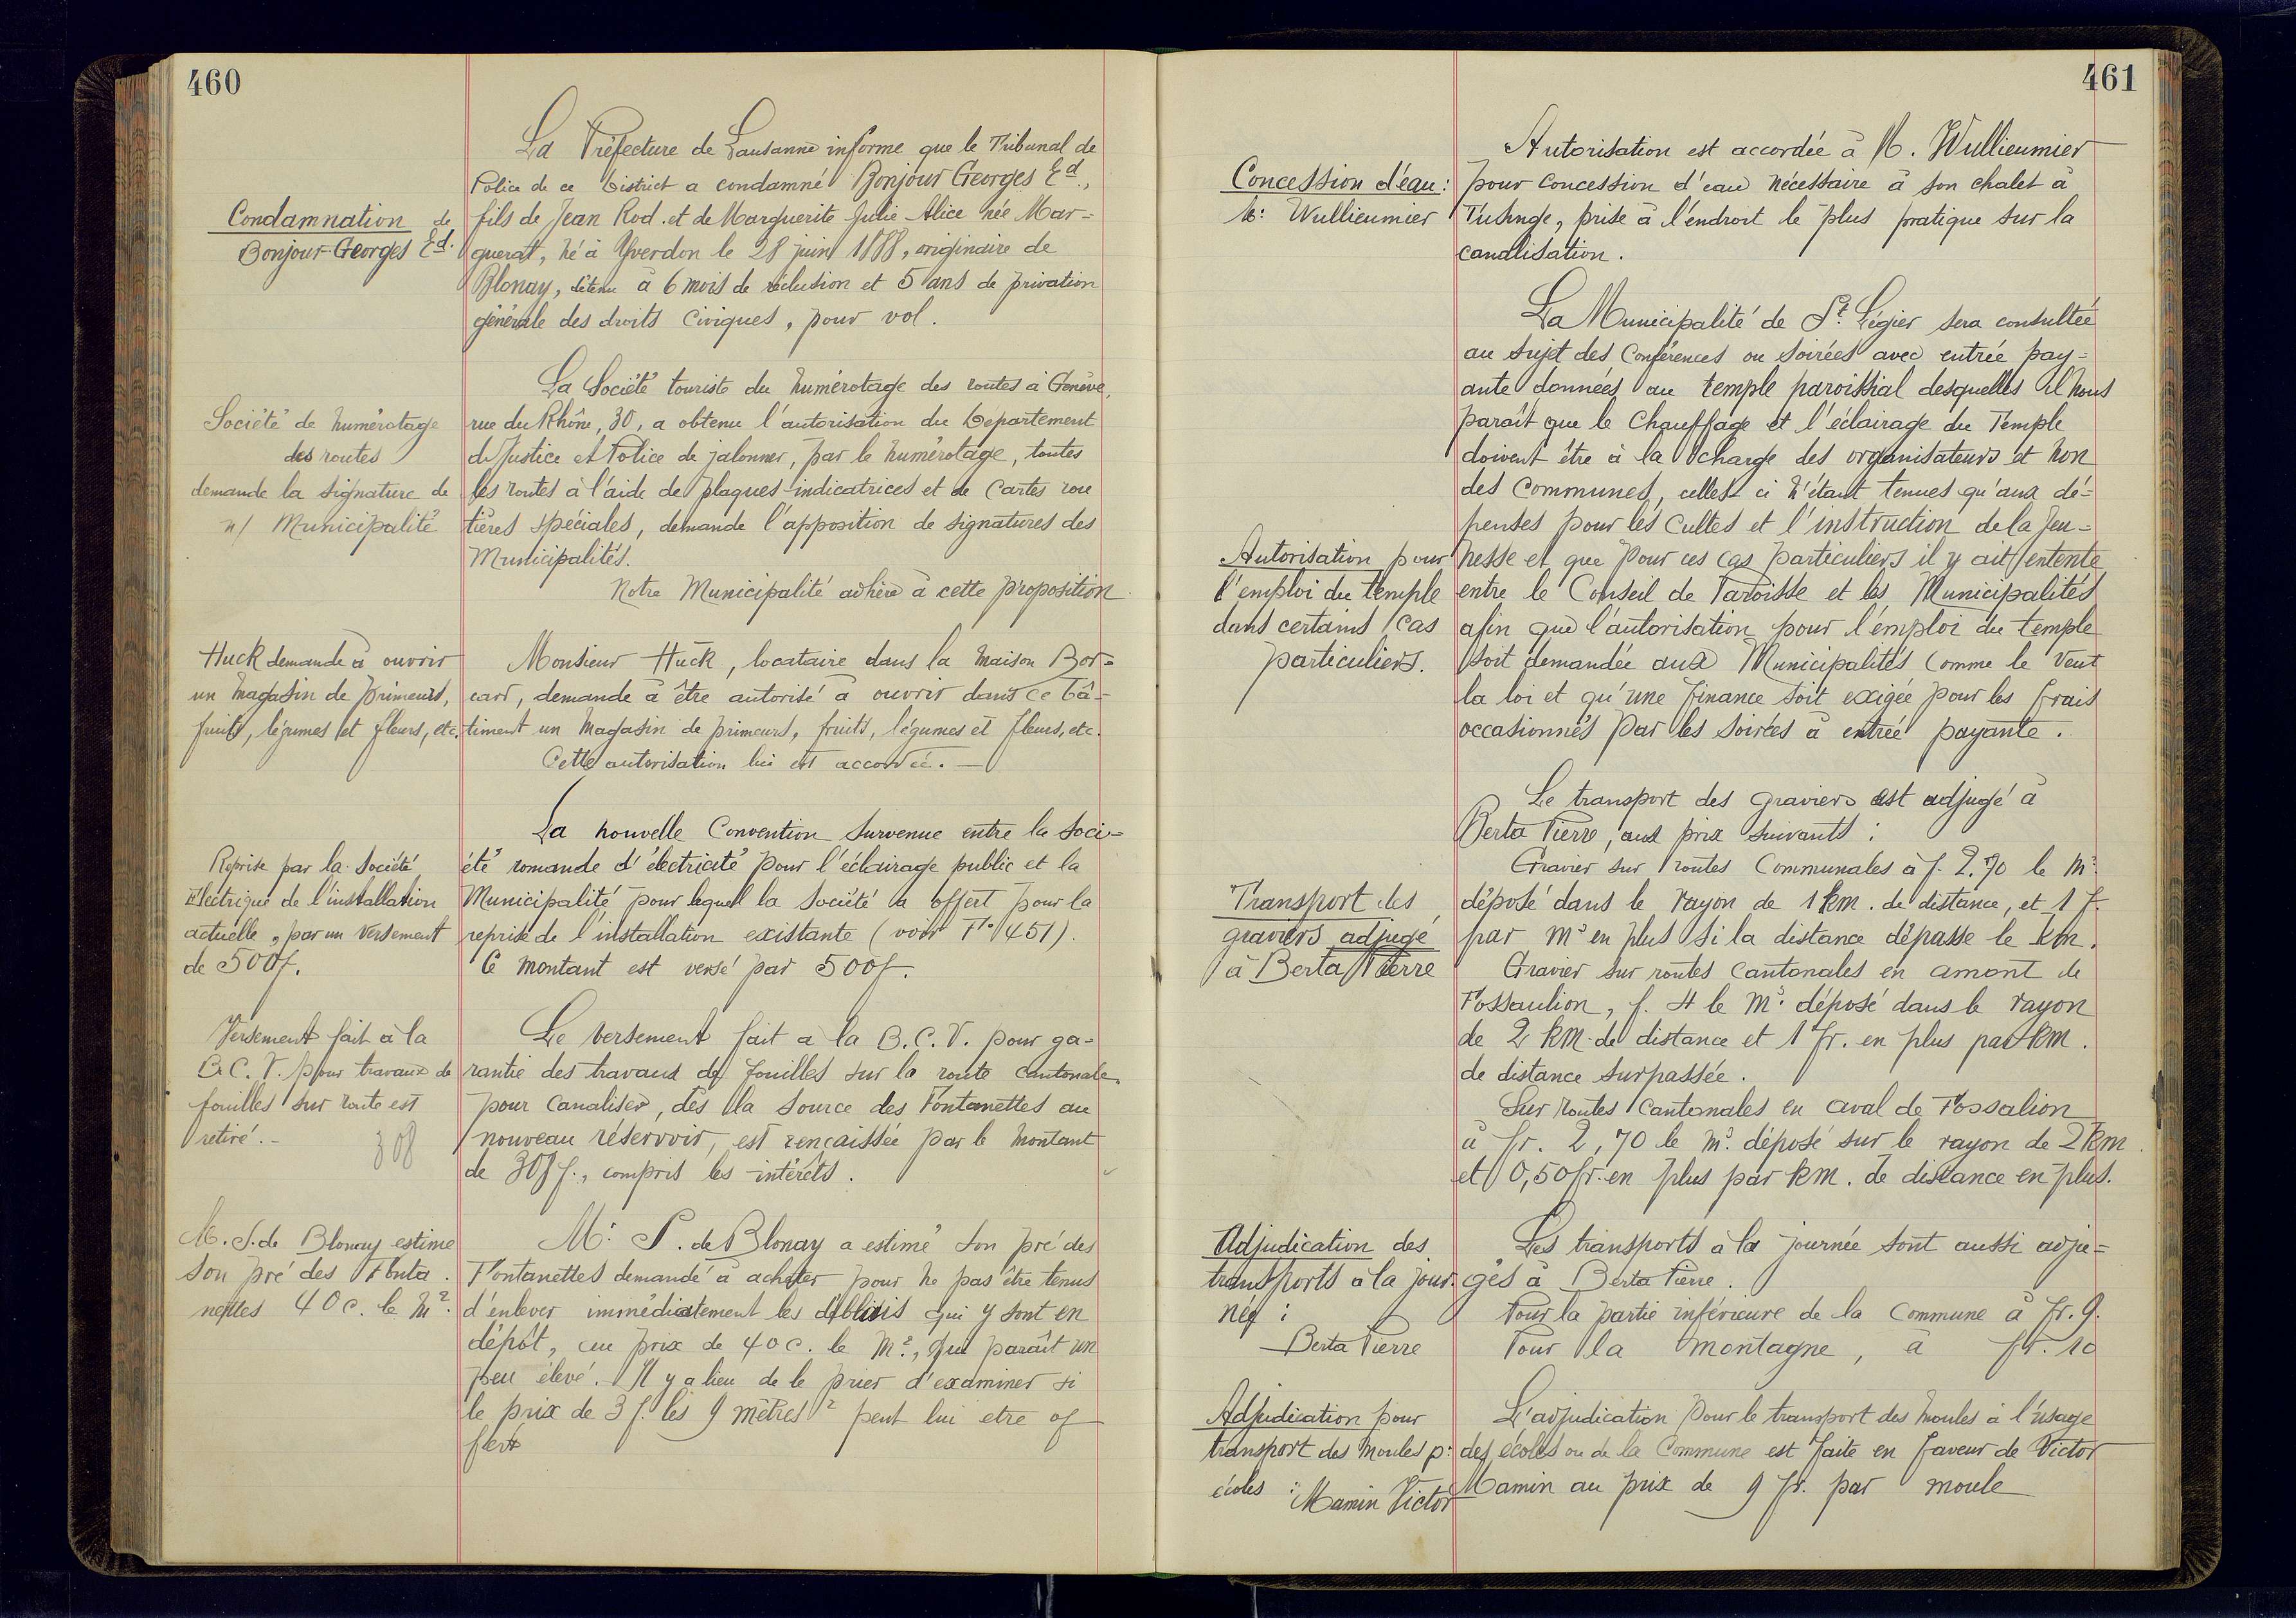 460
La Préfecture de Lausanne informe que le Tribunal de
Police de ce District a condamné Bonjour Georges Ed.,
Condamnation de
Bonjour Georges Ed.
fils de Jean Rod. et de Marguerite Julie Alice née Mar-
guerat, né à Yverdon le 28 juin 1888, originaire de
Blonay, détenu à 6 mois de réclusion et 5 ans de privation
générale des droits Civiques, pour vol.
La Société touriste du numérotage des routes à Genève,
Société de numérotage
des routes
demande la signature de
n/ Municipalité
rue du Rhône, 30, a obtenu l'autorisation du Département
de Justice et Police de jalonner, par le numérotage, toutes
les routes à l'aide de plaques indicatrices et de Cartes rou
tières spéciales, demande l'apposition de signatures des
Municipalités.
Notre Municipalité adhère à cette proposition
Huck demande à ouvrir
un magasin de primeurs,
fruits, légumes et fleurs, etc.
Monsieur Huck, locataire dans la maison Bor-
card, demande à être autorisé à ouvrir dans ce bâ-
timent un magasin de primeurs, fruits, légumes et fleurs, etc.
Cette autorisation lui est accordée. —
La nouvelle Convention survenue entre la Soci-
Reprise par la Société
Electrique de l'installation
actuelle, par un versement
de 500f.
été romande d'électricité pour l'éclairage public et la
Municipalité pour lequel la Société a offert pour la
reprise de l'installation existante (voir F° 451).
Ce montant est versé par 500f.
Versement fait à la
B.C.V. pour travaux de
fouilles sur route est
retiré. -
308
Le versement fait à la B.C.V. pour ga-
rantie des travaux de fouilles sur la route cantonale
pour Canaliser, dès la source des Fontanettes au
nouveau réservoir, est rencaissée par le montant
de 308 f., compris les intérêts.
M. S. de Blonay estime
son pré des Fonta
nettes 40 c. le m².
Mr. S. de Blonay a estimé son pré des
Fontanettes demandé à acheter pour ne pas être tenus
d'enlever immédiatement les déblais qui y sont en
dépôt, au prix de 40 c. le m², qui paraît un
peu élevé. Il y a lieu de le prier d'examiner si
le prix de 3 f. les 9 mètres² peut lui etre of
fert
461
Autorisation est accordée à M. Wullieumier
Concession d'eau:
Mr Wullieumier
pour concession d'eau nécessaire à son chalet à
prise à l'endroit le plus pratique sur la
canalisation.
La Municipalité de St. Légier sera consultée
au sujet des Conférences ou soirées avec entrée pay-
ante données au temple paroissial desquelles il nous
paraît que le Chauffage et l'éclairage du Temple
doivent être à la charge des organisateurs et non
des Communes, celles-ci n'étant tenues qu'aux dé-
penses pour les cultes et l'instruction de la jeu-
Autorisation pour
l'emploi du temple
dans certains cas
particuliers.
nesse et que pour ces cas particuliers il y ait entente
entre le Conseil de Paroisse et les Municipalités
afin que l'autorisation pour l'emploi du temple
soit demandée aux Municipalités comme le veut
la loi et qu'une finance soit exigée pour les frais
occasionnés par les soirées à entrée payante.
Le transport des graviers est adjugé à
Berta Pierre, aux prix suivants :
Gravier sur routes Communales à f. 2.70 le m³
Transport des
graviers adjugé
à Berta Pierre
déposé dans le rayon de 1 km. de distance, et 1 f.
par m³ en plus si la distance dépasse le km.
Gravier sur routes cantonales en amont de
Fossaulion, f. 4 le m³ déposé dans le rayon
de 2 km. de distance et 1 fr. en plus par km.
de distance surpassée.
Sur routes Cantonales en aval de Fossalion
à fr. 2,70 le m³. déposé sur le rayon de 2 km
et 0,50 fr. en plus par km. de distance en plus.
Adjudication des
transports à la jour-
née :
Berta Pierre
Les transports à la journée sont aussi adju-
gés à Berta Pierre.
Pour la partie inférieure de la Commune à fr. 9.
Pour la montagne, à fr. 10
Adjudication pour
transport des moules pr
écoles : Mamin Victor
L'adjudication pour le transport des moules à l'usage
des écoles ou de la Commune est faite en faveur de Victor
Mamin au prix de 9 fr. par moule